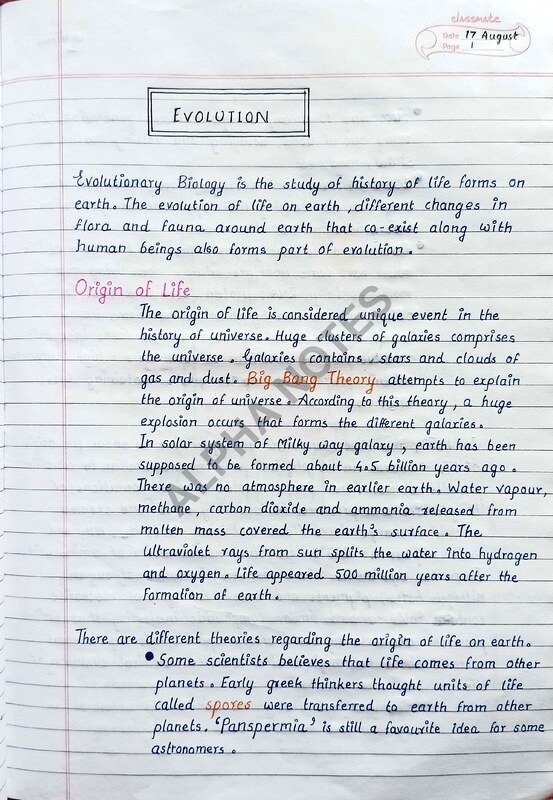 classmate
Date 17 August
Page 1
EVOLUTION
Evolutionary Biology is the study of history of life forms on
earth. The evolution of life on earth, different changes in
flora and fauna around earth that co-exist along with
human beings also forms part of evolution.
Origin of Life
The origin of life is considered unique event in the
history of universe. Huge clusters of galaxies comprises
the universe. Galaxies contains stars and clouds of
gas and dust. Big Bang Theory attempts to explain
the origin of universe. According to this theory, a huge
explosion occurs that forms the different galaxies.
In solar system of Milky way galaxy, earth has been
supposed to be formed about 4.5 billion years ago.
There was no atmosphere in earlier earth. Water vapour,
methane, carbon dioxide and ammonia released from
molten mass covered the earth's surface. The
ultraviolet rays from sun splits the water into hydrogen
and oxygen. Life appeared 500 million years after the
formation of earth.
There are different theories regarding the origin of life on earth.
• Some scientists believes that life comes from other
planets. Early greek thinkers thought units of life
called spores were transferred to earth from other
planets. 'Panspermia' is still a favourite idea for some
astronomers.
ALPHA NOTES